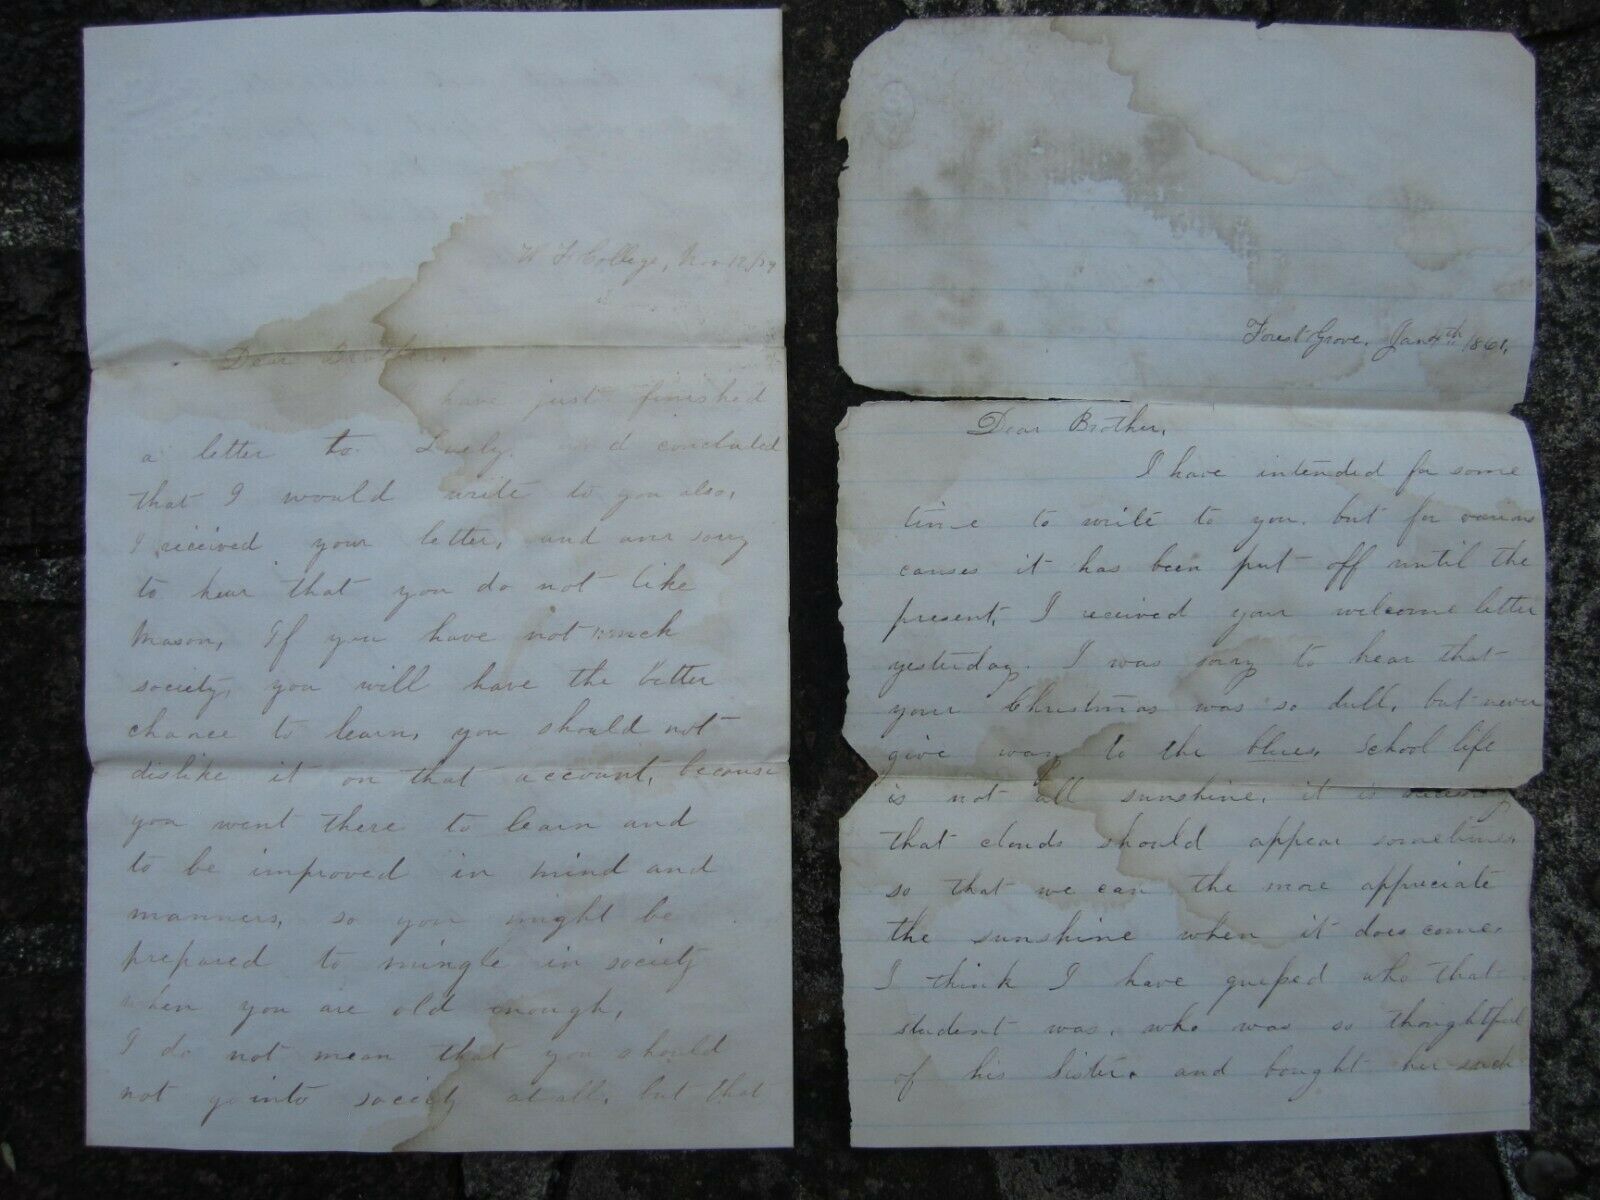 W F College, Nov 12/59
Dear Brother,
have just finished
a letter to and concluded
that I would write to you also,
I received your letter, and am sorry
to hear that you do not like
Mason, If you have not much
society, you will have the better
chance to learn, you should not
dislike it on that account, because
you went there to learn and
to be improved in mind and
manners, so you might be
prepared to mingle in society
when you are old enough,
I do not mean that you should
not go into society at all, but that
Forest Grove, Jan 4th 1861,
Dear Brother,
I have intended for some
time to write to you. but for various
causes it has been put off until the
present, I received your welcome letter
yesterday. I was sorry to hear that
your Christmas was so dull, but never
give way to the blues. School life
is not all sunshine, it is necessary
that clouds should appear sometimes,
so that we can the more appreciate
the sunshine when it does come.
I think I have guessed who that
student was, who was so thoughtful
of his Sister, and bought her such